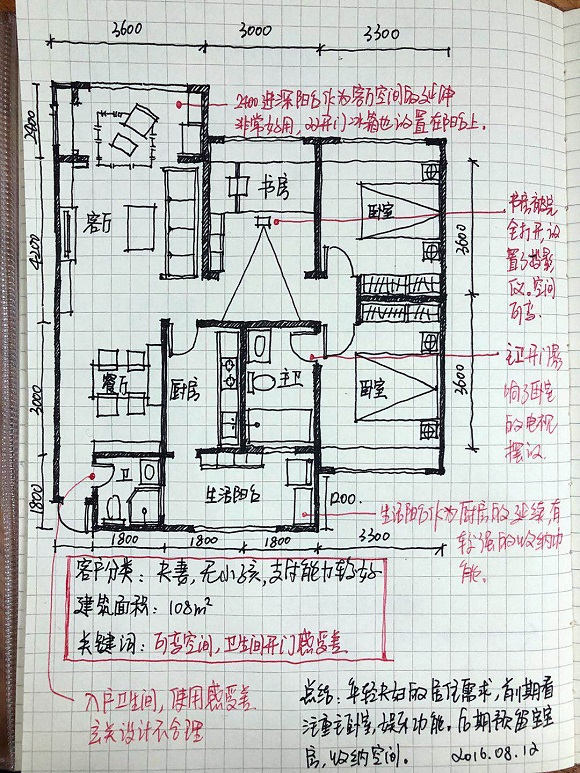 3600
3000
3300
2400
2400进深阳台作为客厅空间的延伸
非常好用，双开门冰箱也设置在阳台上.
书房
卧室
客厅
4200
3600
书房被完
全打开,设
置了投影
仪。空间
可变.
主卫开门影
响了卧室
的电视
摆设.
餐厅
厨房
主卫
卧室
3600
3000
卫
生活阳台
1800
1200.
生活阳台作为厨房的延续,有
较强的收纳功
能。
1800
1800
1800
3300
客户分类：夫妻,无小孩,支付能力较好
建筑面积：108m²
关键词：可变空间,卫生间开门感受差
入户卫生间,使用感受差
玄关设计不合理
总结：年轻夫妇的居住需求,前期看
注重主卧室,娱乐功能.后期预留
房,收纳空间.
2016.08.12